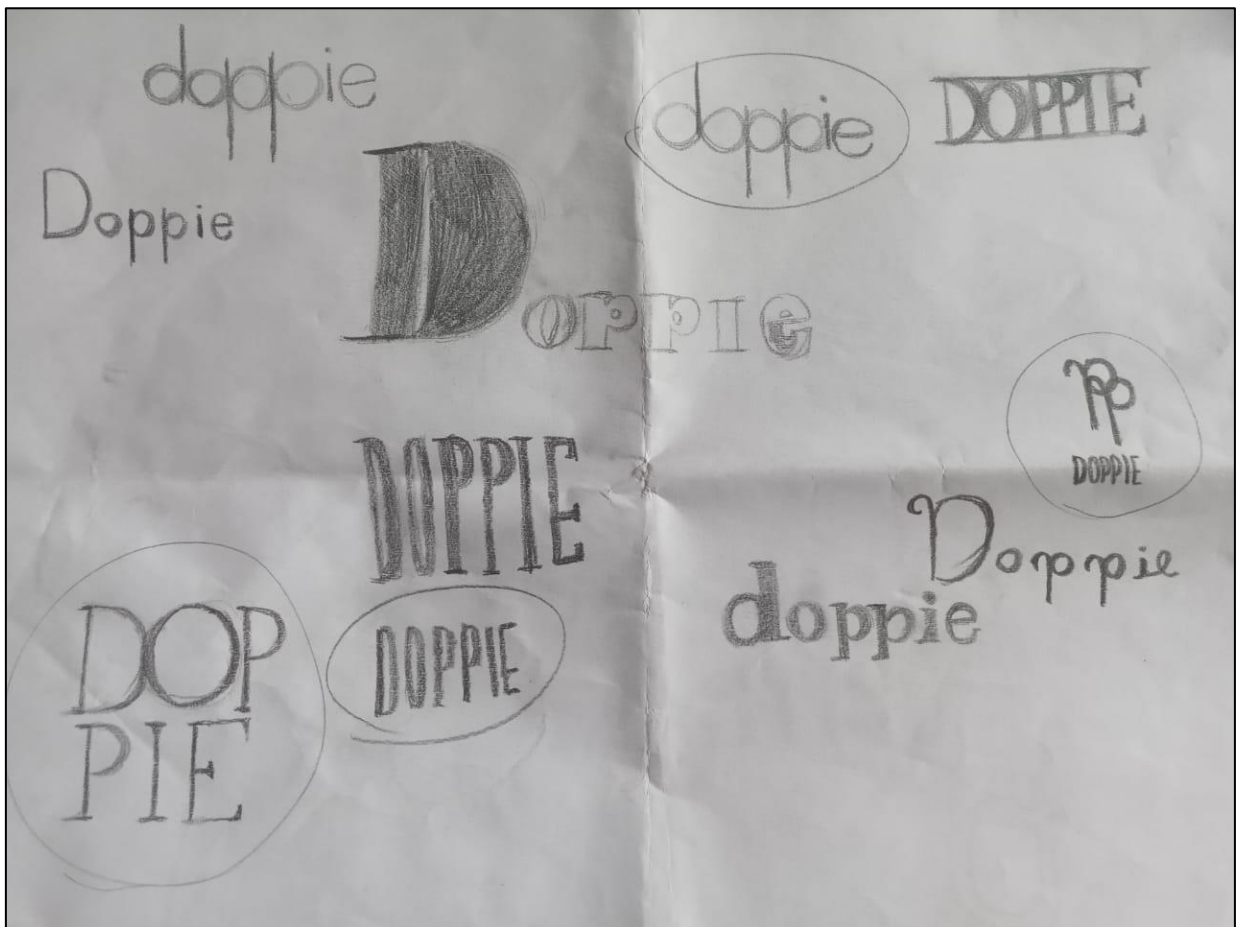 doppie
doppie
DOPPIE
Doppie
Doppie
DOPPIE
DOPPIE
Doppie
doppie
DOP
PIE
DOPPIE